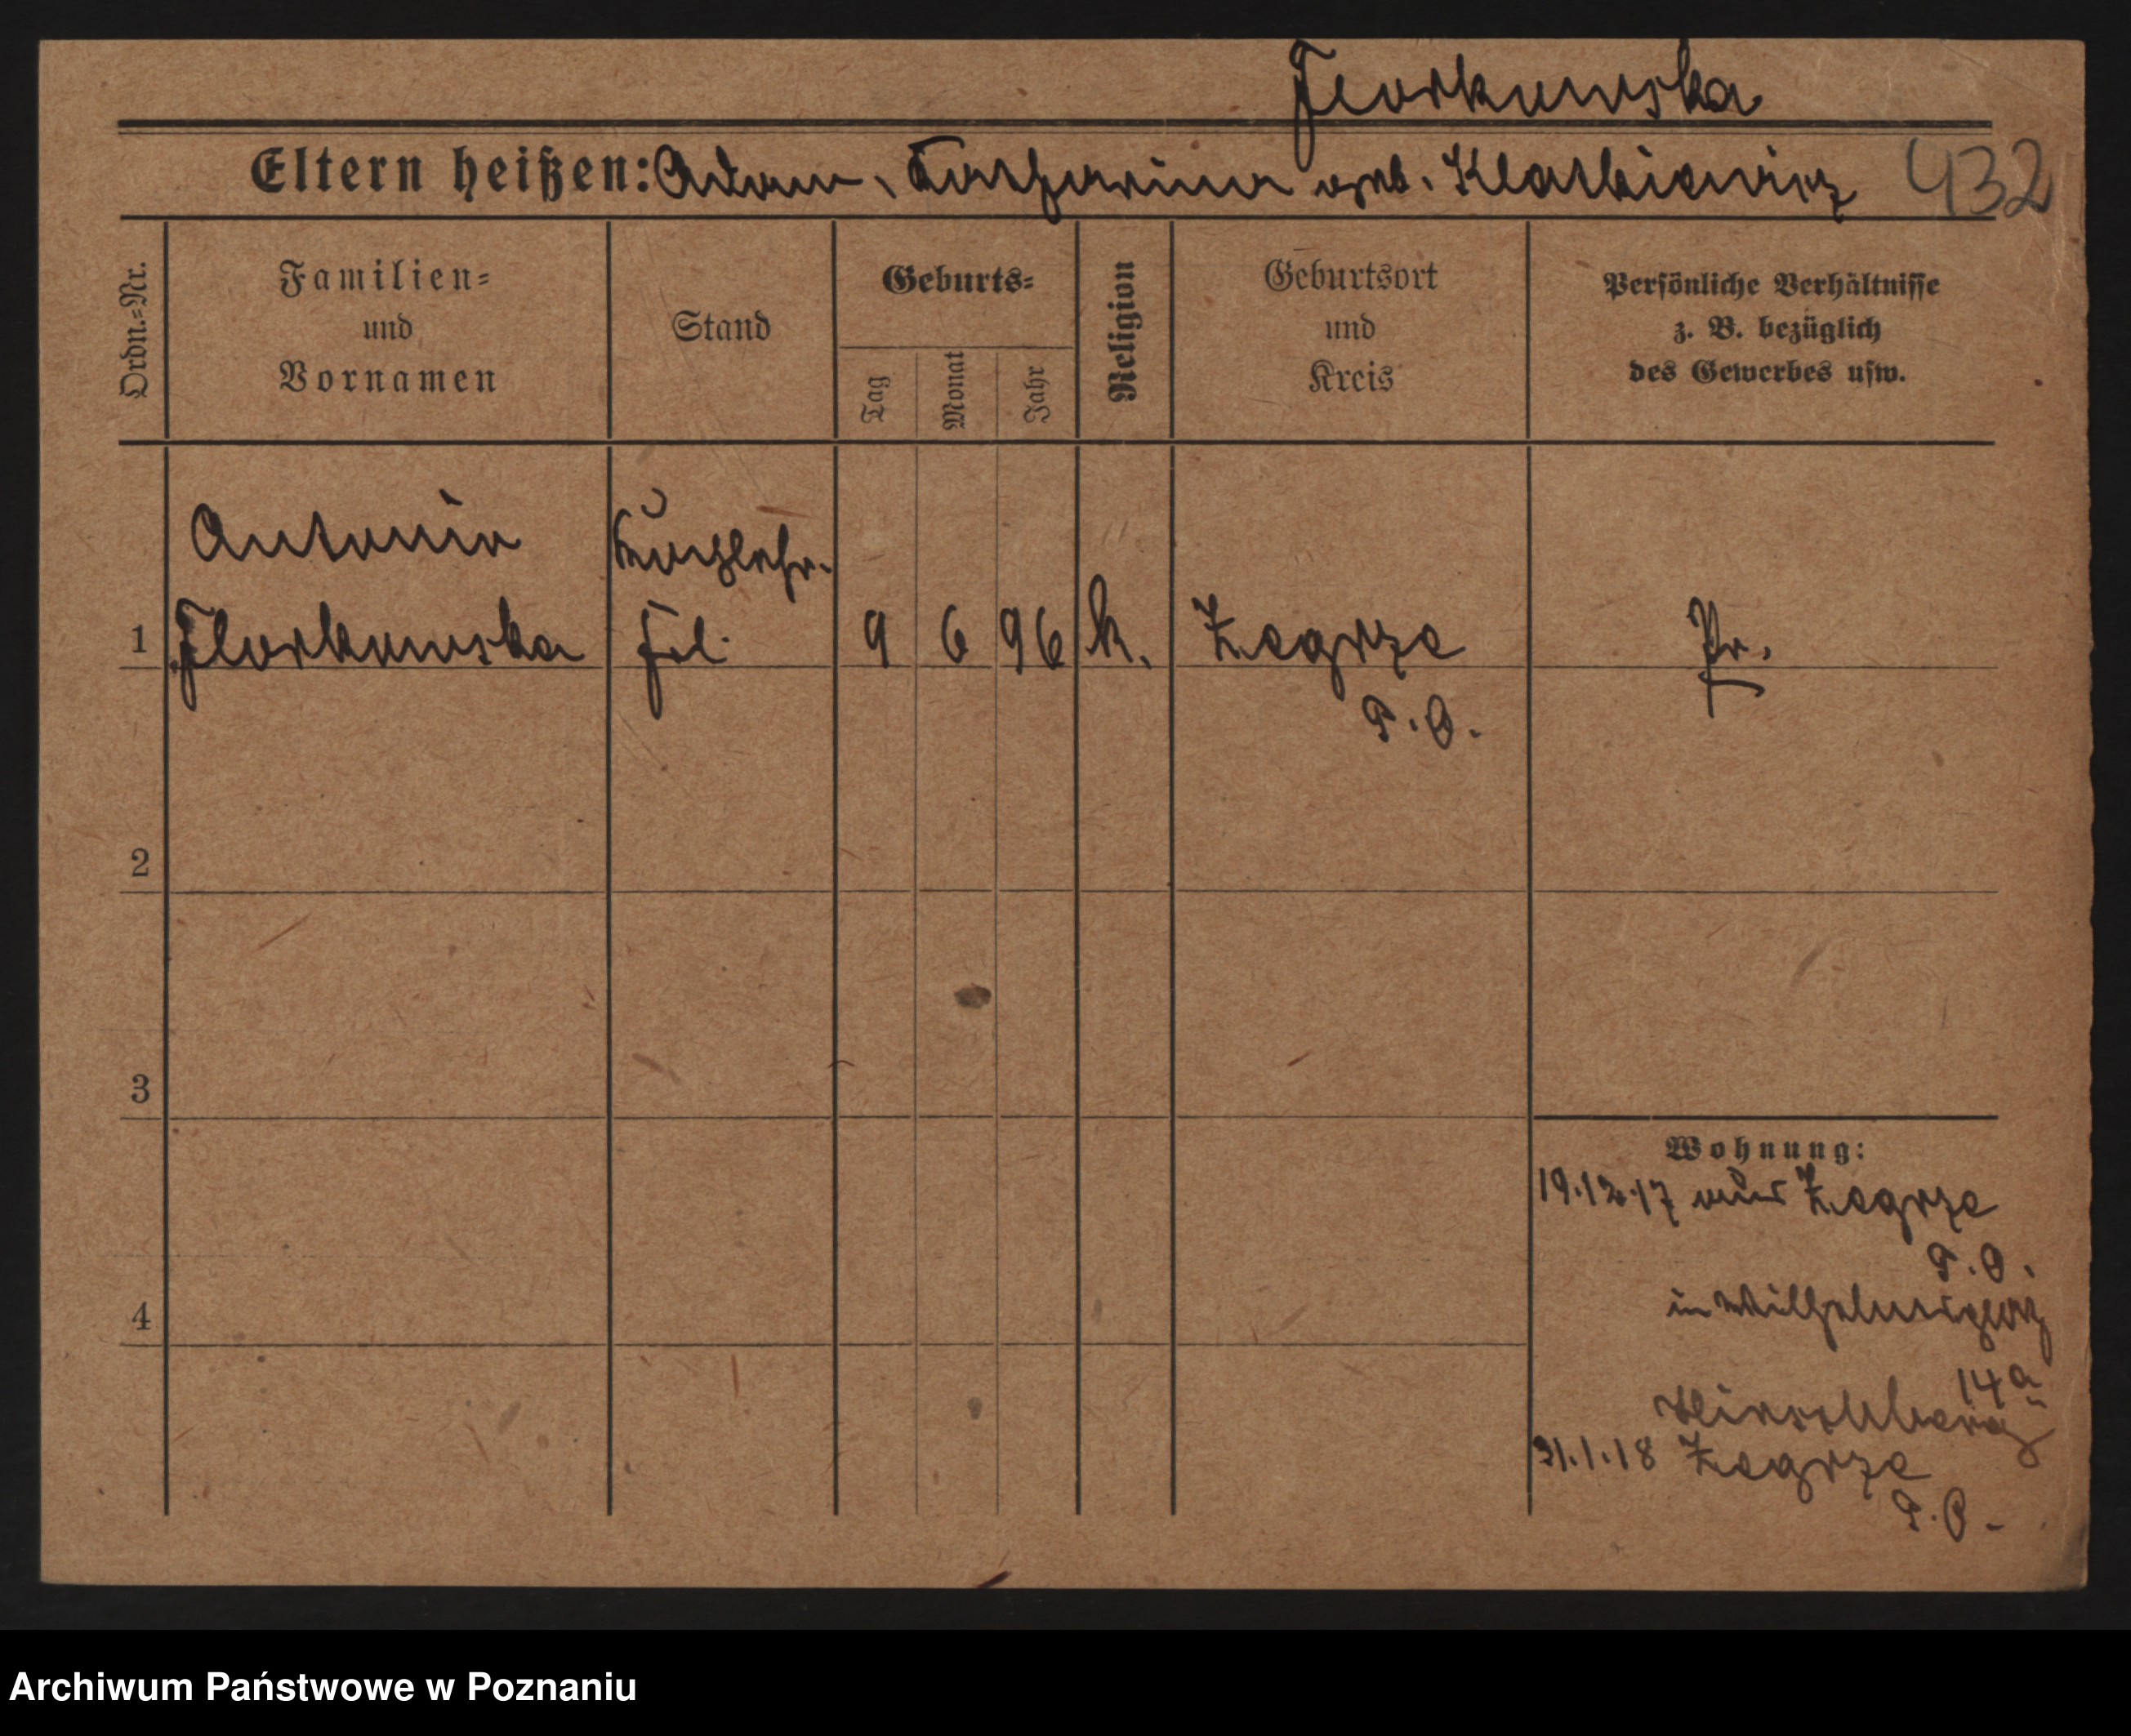 Florkowska
Eltern heißen: Adam, Katharina geb. Klatkiewicz 432
Ordn.=Nr.
Familien=
und
Vornamen
Stand
Geburts=
Tag
Monat
Jahr
Religion
Geburtsort
und
Kreis
Persönliche Verhältnisse
z. B. bezüglich
des Gewerbes usw.
Antonia
1 Florkowska 9 6 96 k. Zegrze Pr.
P.O.
2
3
4
Wohnung:
19.12.17 aus Zegrze
P.O.
in Wilhelmsplatz
14a
Hirschberg
31.1.18 Zegrze
P.O.
Archiwum Państwowe w Poznaniu